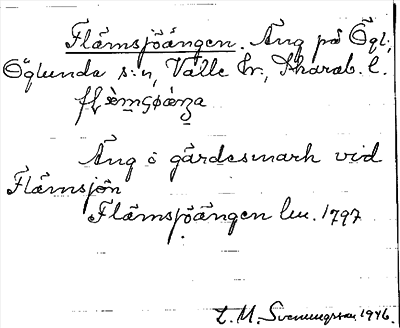 Flämsjöängen. Äng på Ögl.,
Öglunda s:n, Valle hr., Skarab. l.
Äng o gärdesmark vid
Flämsjön
Flämsjöängen lm. 1797
L. M. Svenungsson 1946.